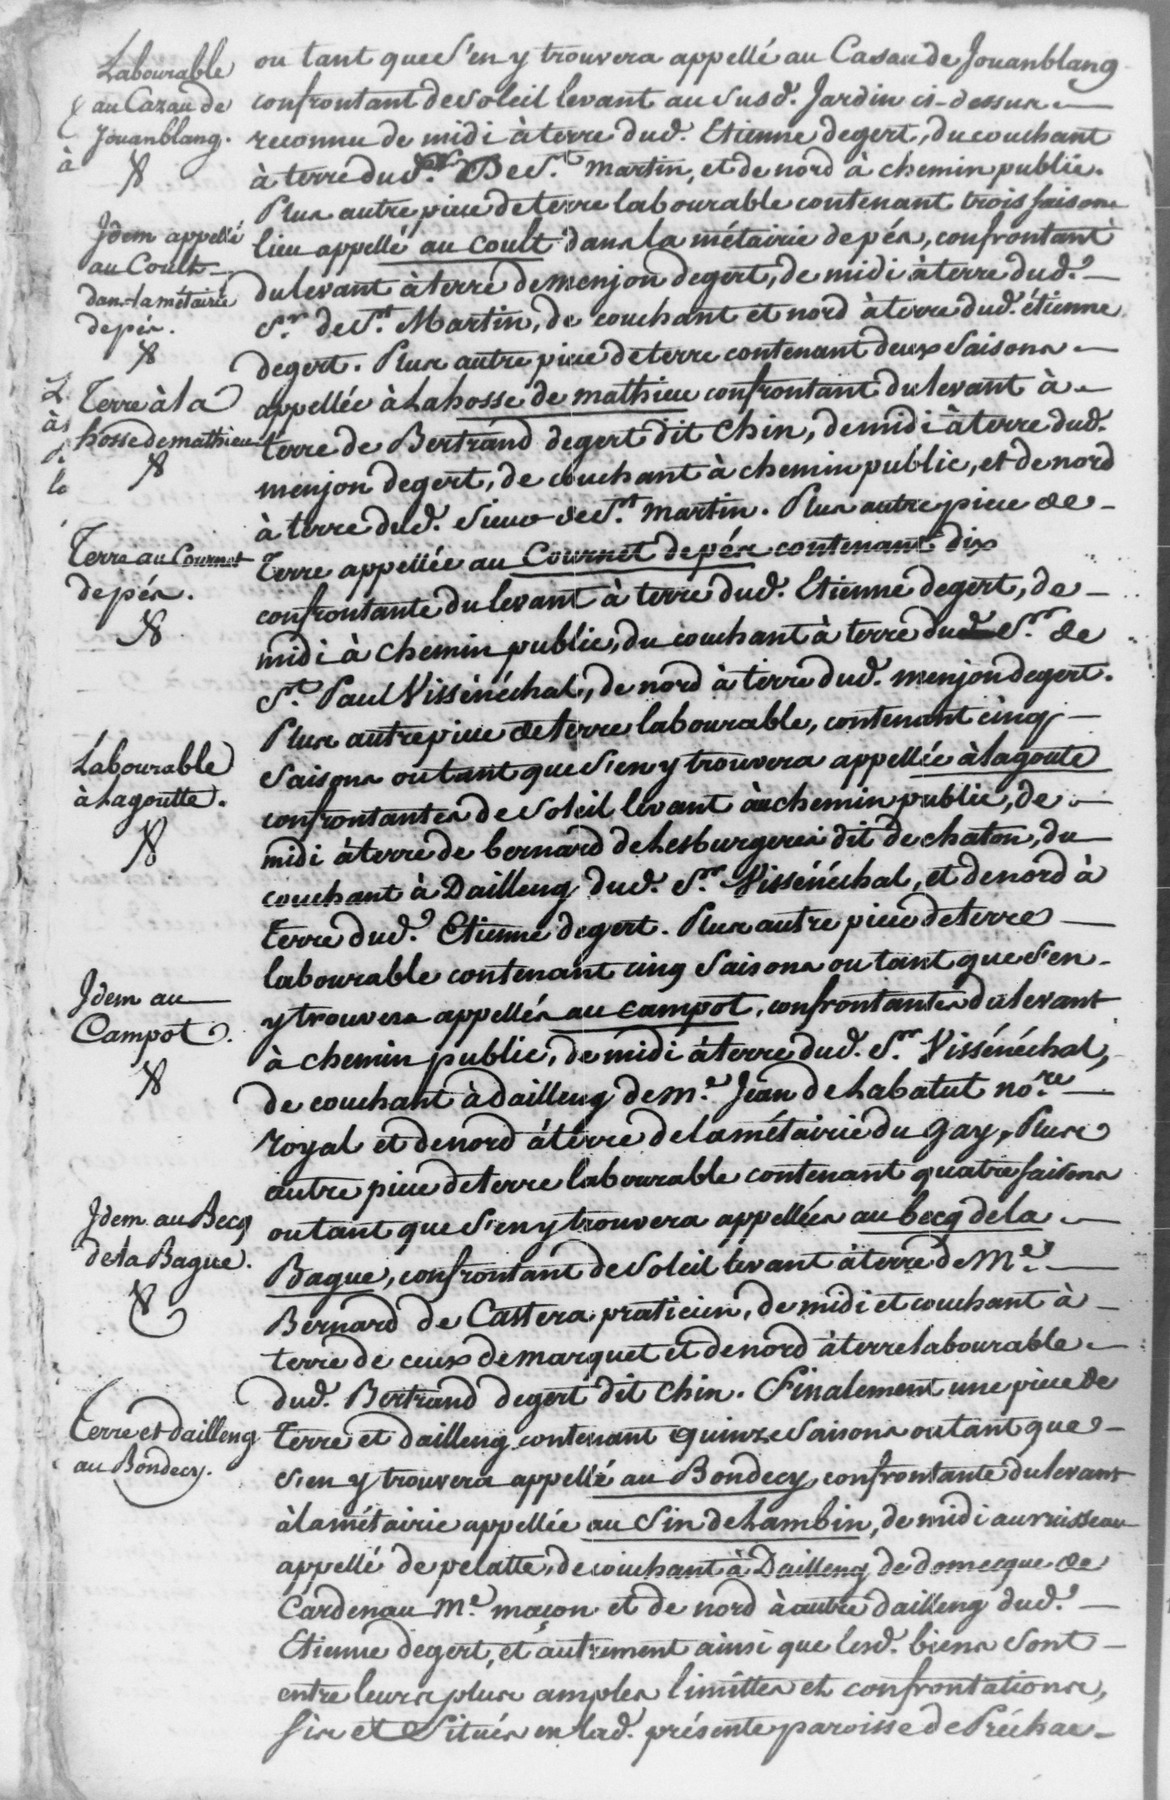 Labourable
au Cazau de
Jouanblang.
à
ou tant que S'en y trouvera appellé au Casau de Jouanblang
confrontant de Soleil levant au Susd. Jardin ci-dessus
reconnu de midi à terre dud. Etienne degert, du couchant
à terre dud. Sr. De St. Martin, et de nord à chemin public.
Idem appellé
au Coult
dans la métairie
de pés.
Plus autre piece de terre labourable contenant trois saisons
lieu appellé au Coult dans la métairie de pés, confrontant
du levant à terre de menjon degert, de midi à terre dud.
Sr. de St. Martin, de couchant et nord à terre dud. étienne
degert. Plus autre piece de terre contenant deux Saisons
Terre à la
hosse de mathieu
appellée à Lahosse de mathieu confrontant du levant à
terre de Bertrand degert dit Chin, de midi à terre dud.
menjon degert, de couchant à chemin public, et de nord
à terre dud. Sieur de St. martin. Plus autre piece de
Terre au Cournet
de pés.
Terre appellée au Cournet de pés contenant dix
confrontante du levant à terre dud. Etienne degert, de
midi à chemin public, du couchant à terre dud. Sr. de
St. Paul Vissénéchal, de nord à terre dud. menjon degert.
Plus autre piece de terre labourable, contenant cinq
Labourable
à Lagoutte.
Saisons ou tant que S'en y trouvera appellée à lagoute
confrontantes de Soleil levant au chemin public, de
midi à terre de bernard de Lesburgeres dit de chaton, du
couchant à Dailleng dud. Sr. Vissénéchal, et de nord à
Terre dud. Etienne degert. Plus autre piece de terre
labourable contenant cinq Saisons ou tant que S'en
Idem au
Campot.
y trouvera appellés au campot, confrontantes du levant
à chemin public, de midi à terre dud. Sr. Vissénéchal,
de couchant à dailleng de me. Jean de Labatut nore.
royal et de nord à terre de la métairie du gay, Plus
autre piece de terre labourable contenant quatre saisons
Idem au Becq
de la Bague.
ou tant que S'en y trouvera appellées au becq de la
Bague, confrontant de Soleil levant à terre de Me.
Bernard de Cassera praticien, de midi et couchant à
terre de ceux de marquet et de nord à terre labourable
dud. Bertrand degert dit Chin. Finalement une piece de
Terre et dailleng
au Bondecy.
Terre et dailleng contenant Quinze Saisons ou tant que
S'en y trouvera appellé au Bondecy, confrontante du levant
à la métairie appellée au Sin de Lambin, de midi au ruisseau
appellé de pelatte, de couchant à Dailleng de domecque de
Cardenau Me. maçon et de nord à autre dailleng dud.
Etienne degert, et autrement ainsi que lesd. biens Sont
entre leurs plus amples limittes et confrontations,
Sis et Situés en lad. présente paroisse de Préchac